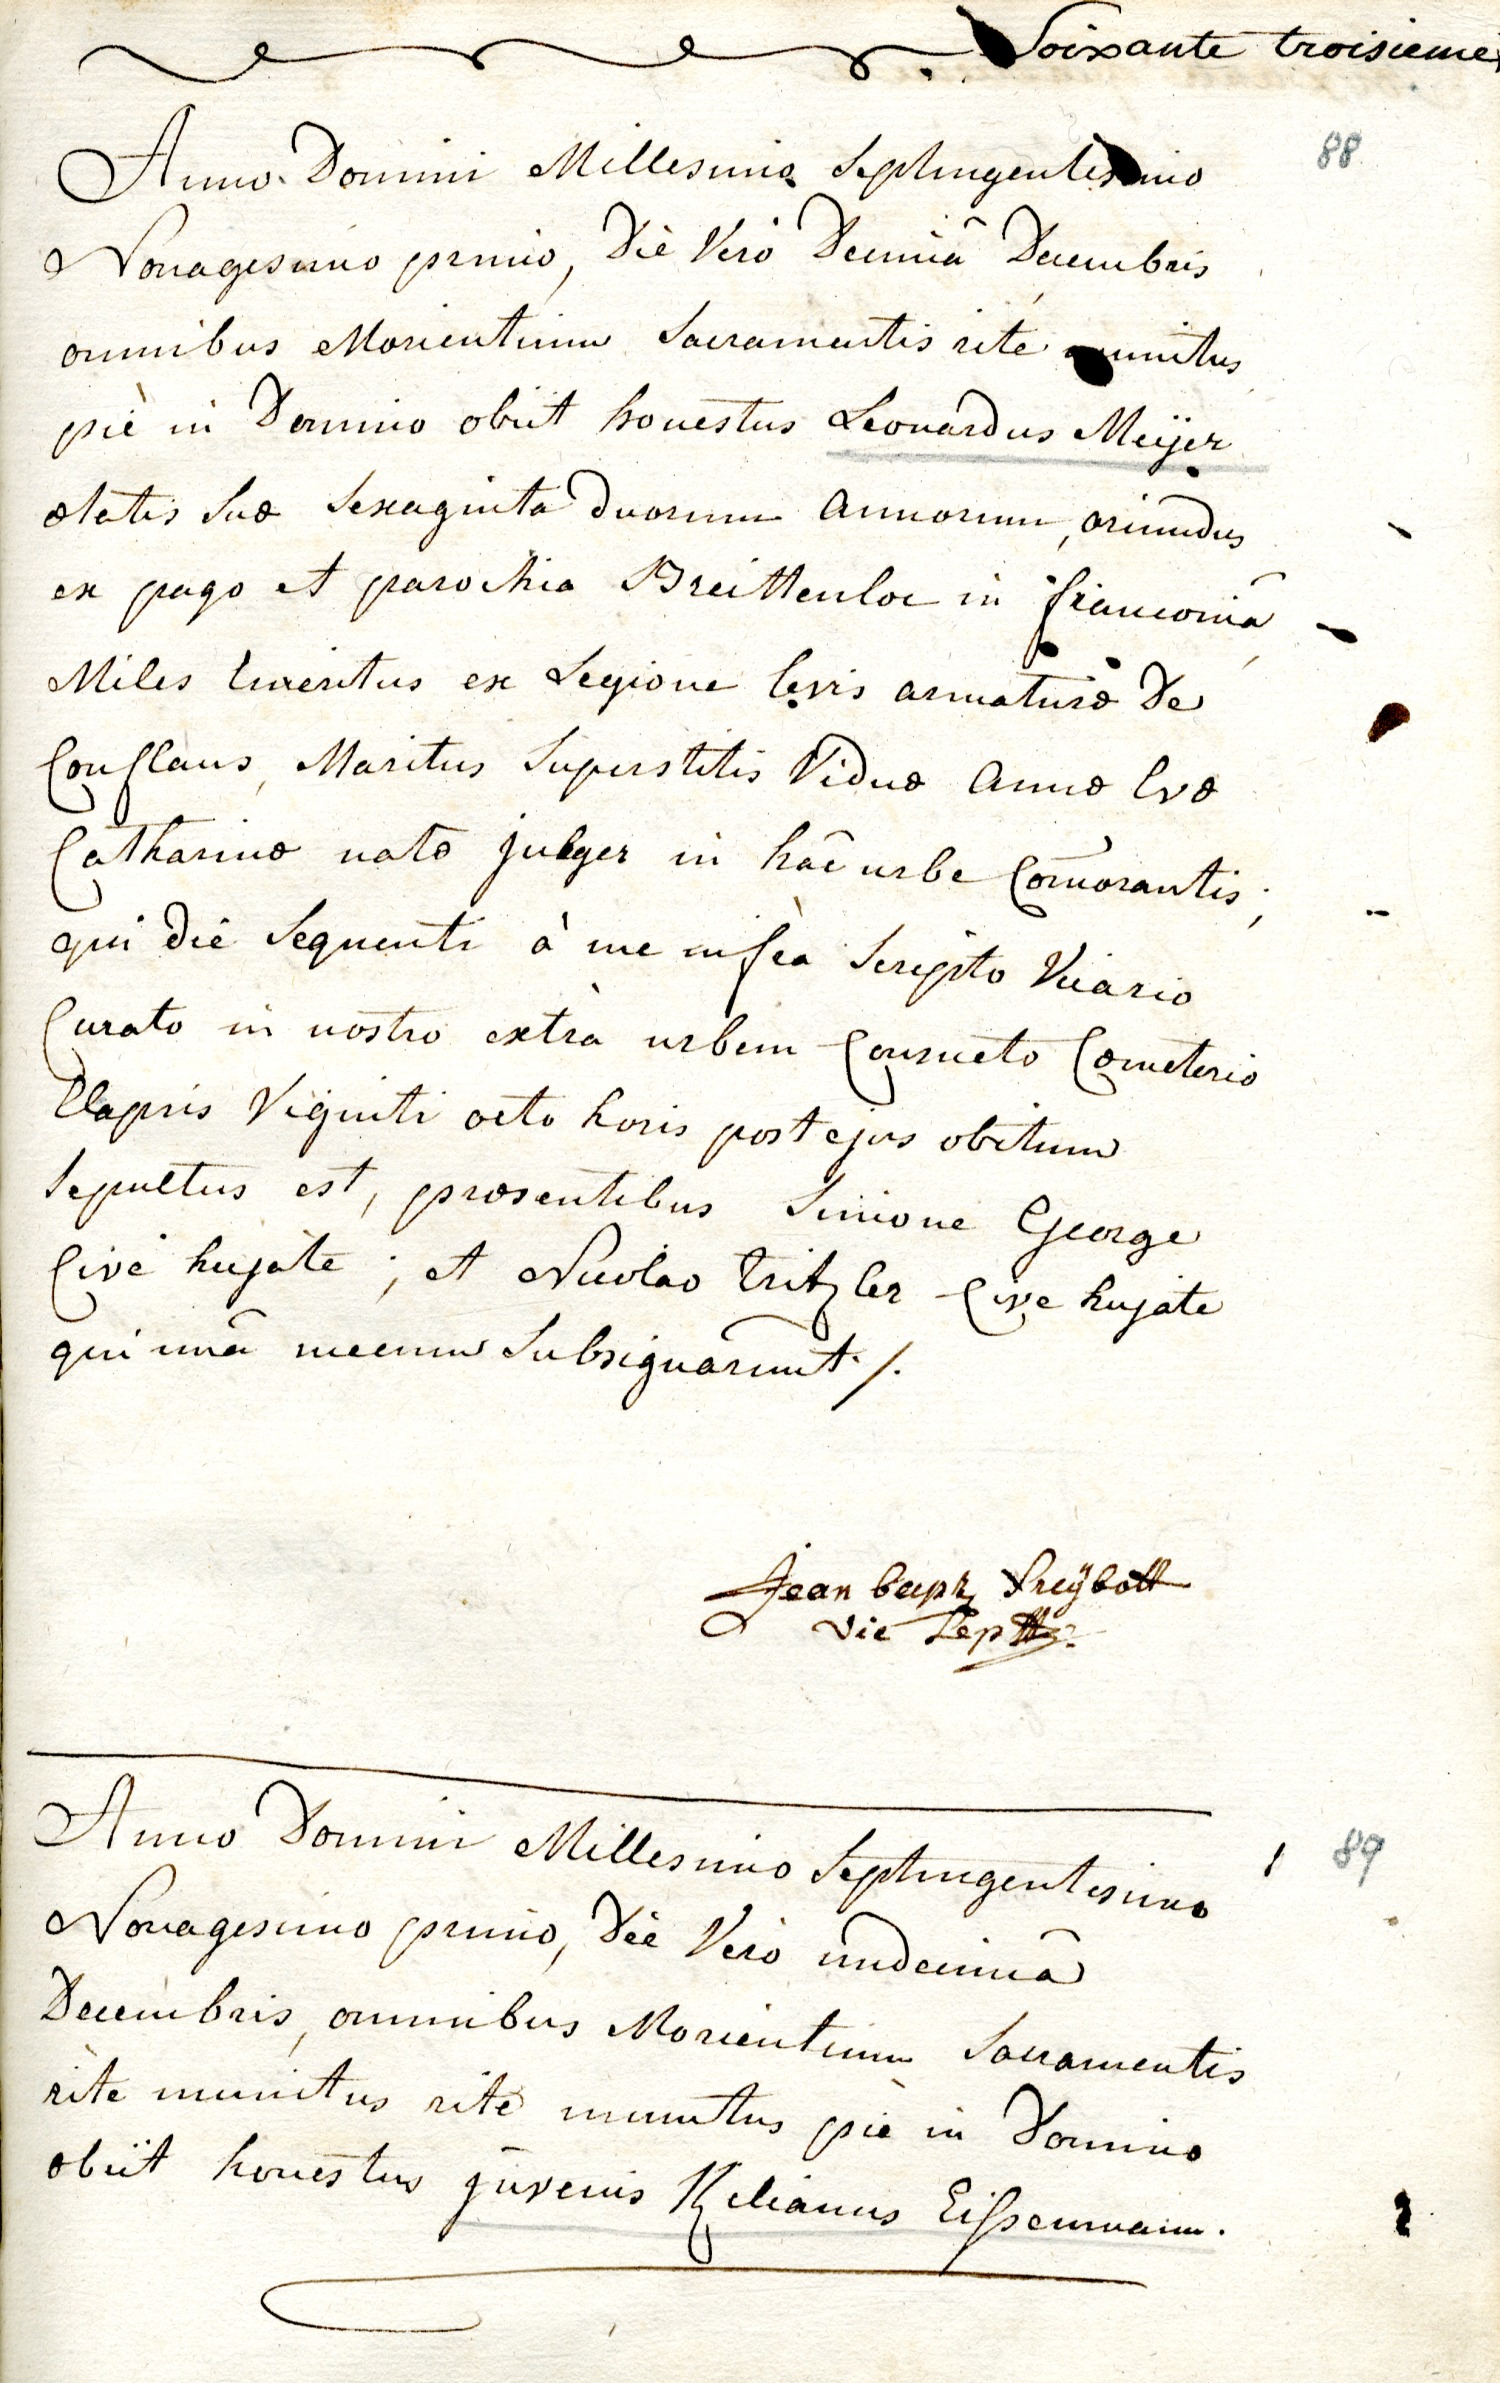 Soixante troisieme
88
Anno Domini Millesimo Septingentesimo
Nonagesimo primo, Diè Verò Decimâ Decembris
omnibus Morientium Sacramentis ritè munitus
piè in Domino obiit honestus Leonardus Meÿer
ætatis suæ sexaginta duorum annorum, oriundus
ex pago et parochia Breittenloe in franconiâ,
Miles Emeritus ex Legione levis armaturæ De
Conflans, Maritus superstitis Viduæ Annæ Evæ
Catharinæ natæ julger in hâc urbe Com̄orantis;
qui diè sequenti à me infrà scripto Vicario
Curato in nostro extrà urbem Consueto Cœmeterio
Elapsis Viginti octo horis post ejus obitum
sepultus est, præsentibus Simone George
Cive hujate; et Nicolao Tritzler Cive hujate
qui unâ mecum subsignârunt./.
Jean bapt Freÿbott
Vic
Anno Domini Millesimo Septingentesimo
89
Nonagesimo primo, Diè Verò undecimâ
Decembris, omnibus Morientium Sacramentis
ritè munitus ritè munitus piè in Domino
obiit honestus juvenis Kilianus Eissenmann.